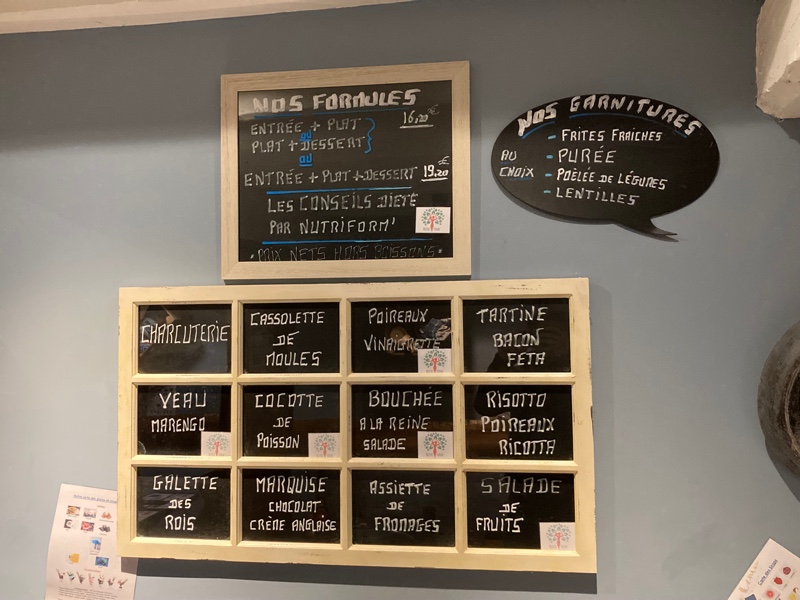 NOS FORMULES
ENTRÉE + PLAT 16,20€
ou
PLAT + DESSERT
ou
ENTRÉE + PLAT + DESSERT 19,20€
LES CONSEILS DIETÉ
PAR NUTRIFORM'
• PRIX NETS HORS BOISSONS •
NOS GARNITURES
AU CHOIX
- FRITES FRAÎCHES
- PURÉE
- POÊLÉE DE LÉGUMES
- LENTILLES
CHARCUTERIE
CASSOLETTE
DE
MOULES
POIREAUX
VINAIGRETTE
TARTINE
BACON
FETA
VEAU
MARENGO
COCOTTE
DE
POISSON
BOUCHÉE
A LA REINE
SALADE
RISOTTO
POIREAUX
RICOTTA
GALETTE
DES
ROIS
MARQUISE
CHOCOLAT
CRÈME ANGLAISE
ASSIETTE
DE
FROMAGES
SALADE
DE
FRUITS